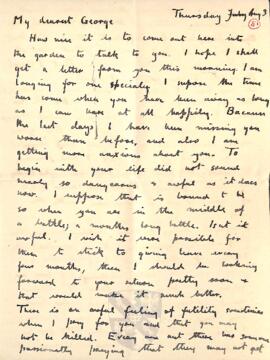 Thursday Aug 3
My dearest George
How nice it is to come out here into
the garden to talk to you. I hope I shall
get a letter from you this morning. I am
longing for one specialy. I supose the time
has come when you have been away as long
as I can bear at all happily. Because
the last days I have been missing you
worse than before, and also I am
getting more anxious about you. To
begin with your life did not sound
nearly so dangerous & awful as it does
now. I suppose that is bound to be
so when you are in the middle of
a battle; a months long battle. Isnt it
awful. I wish it was possible for
them to stick to giving leave every
four months, then I should be looking
forward to your return pretty soon &
that would make it much better.
There is an awful feeling of futility sometimes
when I pray for you and that you may
not be killed. Every man out there has someone
passionately praying that they may not get